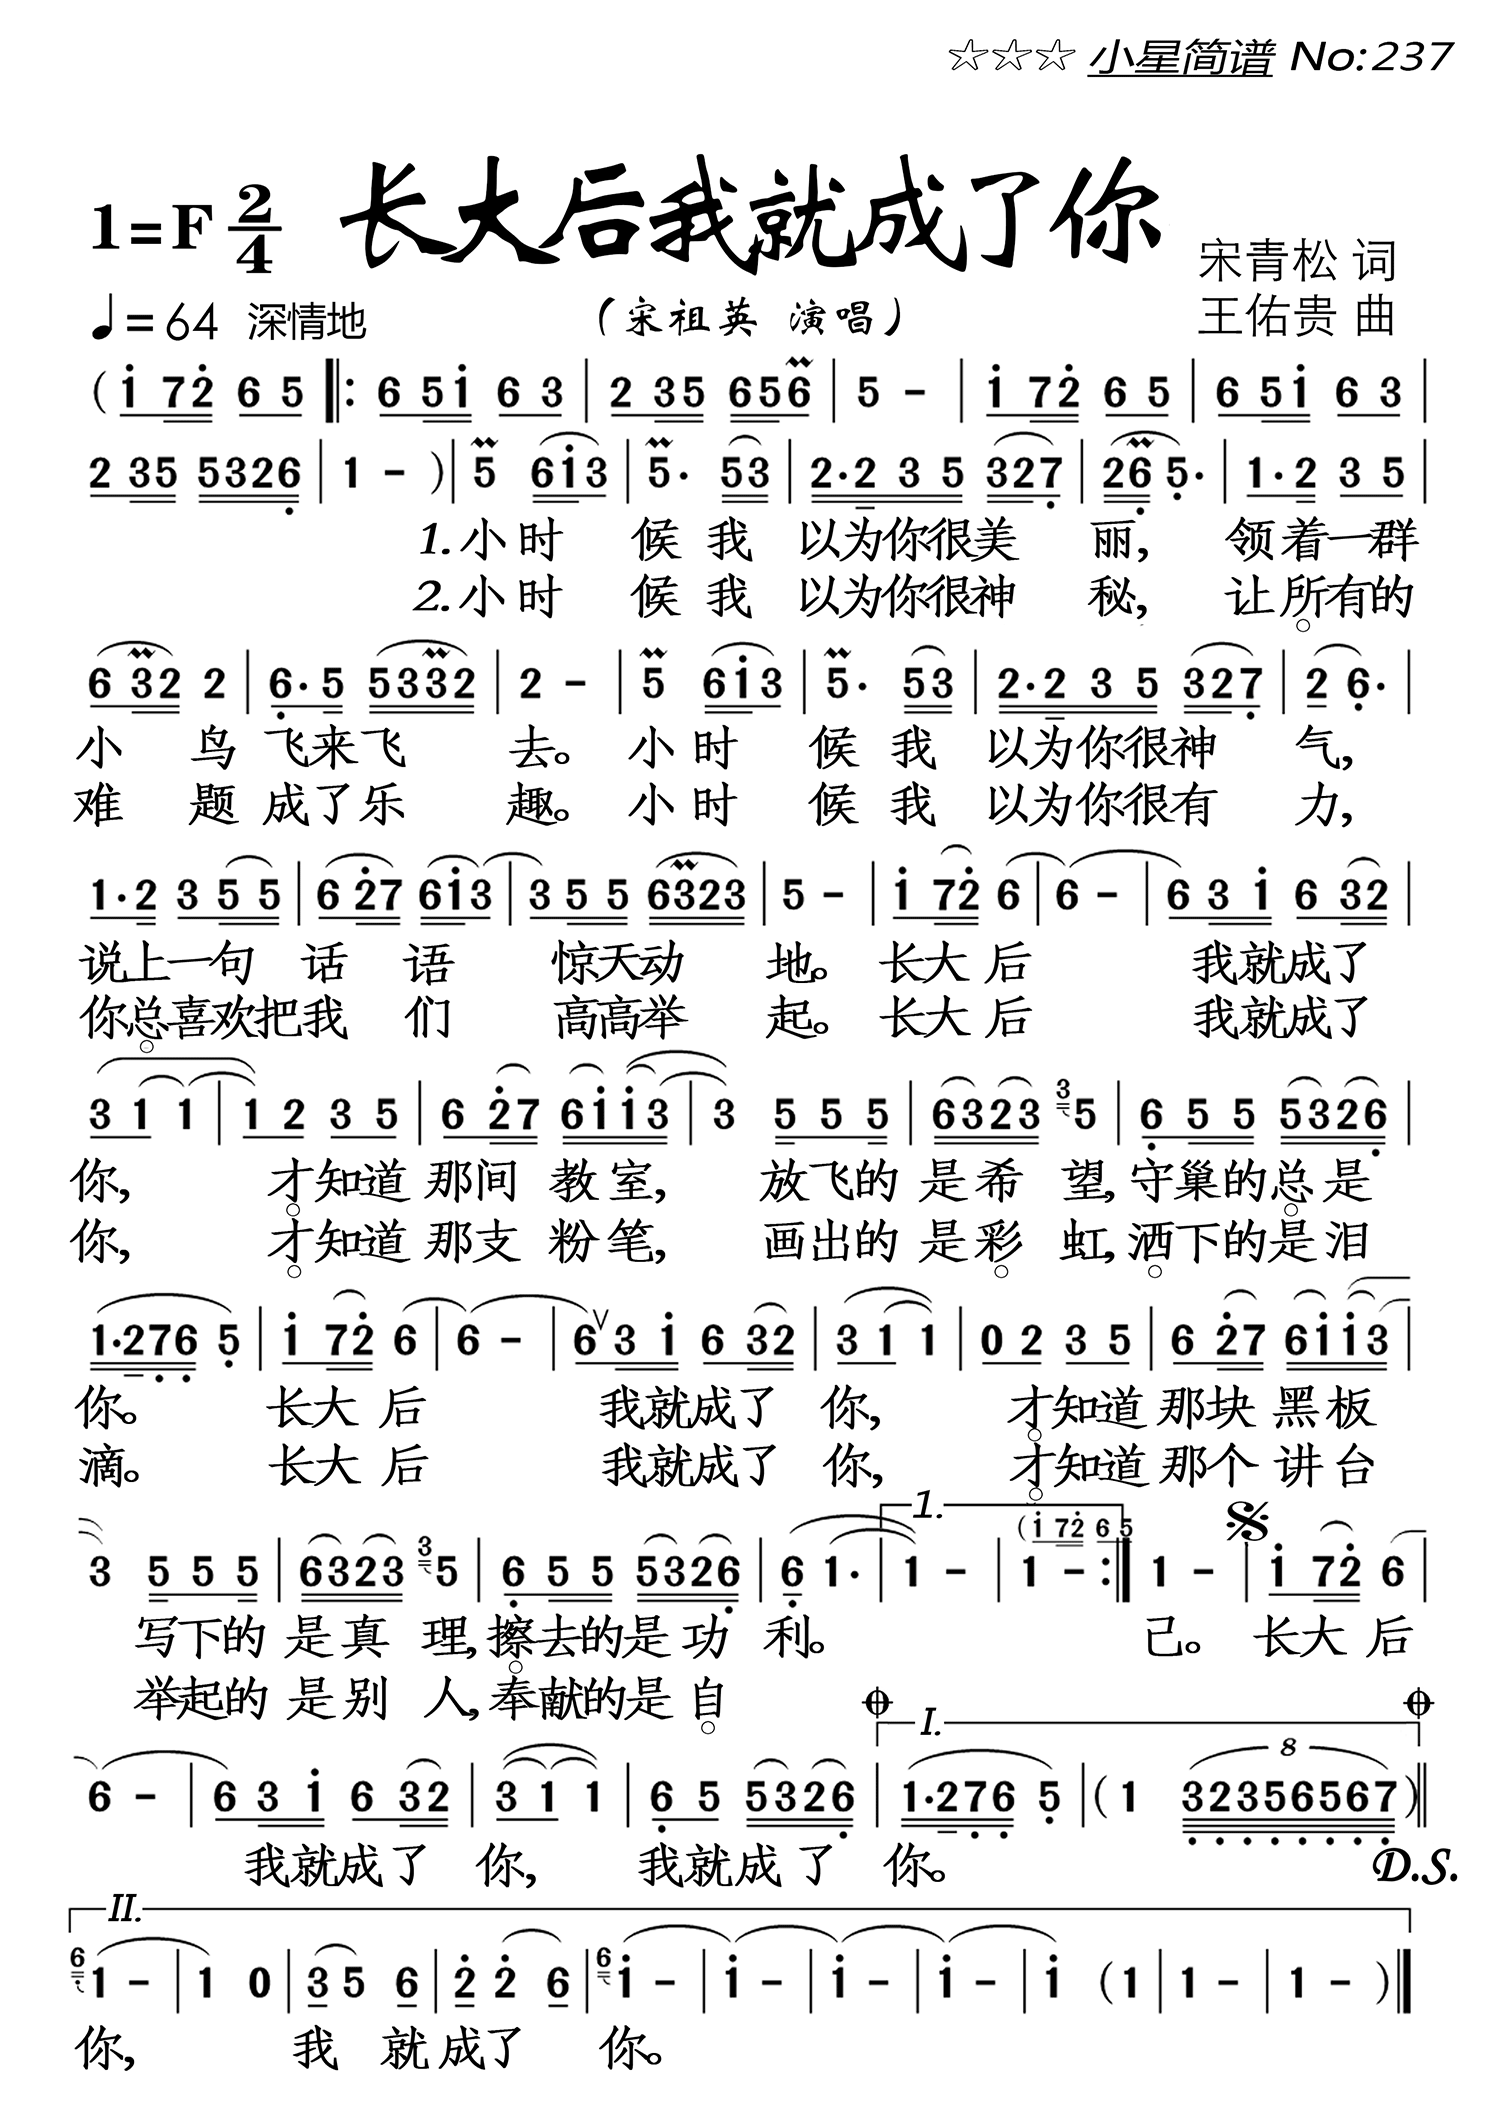 ☆☆☆ 小星简谱 No:237
1=F 2/4 长大后我就成了你
宋青松 词
♩=64 深情地 (宋祖英 演唱) 王佑贵 曲
( i 7 2 6 5 ‖: 6 5 i 6 3 | 2 3 5 6 5 6 | 5 - | i 7 2 6 5 | 6 5 i 6 3 |
2 3 5 5 3 2 6 | 1 - ) | 5 6 i 3 | 5 · 5 3 | 2 · 2 3 5 3 2 7 | 2 6 5 · | 1 · 2 3 5 |
1.小时 候我 以为你很美 丽, 领着一群
2.小时 候我 以为你很神 秘, 让所有的
6 3 2 2 | 6 · 5 5 3 3 2 | 2 - | 5 6 i 3 | 5 · 5 3 | 2 · 2 3 5 3 2 7 | 2 6 · |
小 鸟 飞来飞 去。 小时 候我 以为你很神 气,
难 题 成了乐 趣。 小时 候我 以为你很有 力,
1 · 2 3 5 5 | 6 2 7 6 i 3 | 3 5 5 6 3 2 3 | 5 - | i 7 2 6 | 6 - | 6 3 i 6 3 2 |
说上一句 话 语 惊天动 地。 长大后 我就成了
你总喜欢把我 们 高高举 起。 长大后 我就成了
3 1 1 | 1 2 3 5 | 6 2 7 6 i i 3 | 3 5 5 5 | 6 3 2 3 3 5 | 6 5 5 5 3 2 6 |
你, 才知道那间 教室, 放飞的是希 望,守巢的总是
你, 才知道那支 粉笔, 画出的是彩 虹,洒下的是泪
1 · 2 7 6 5 | i 7 2 6 | 6 - | 6 ∨ 3 i 6 3 2 | 3 1 1 | 0 2 3 5 | 6 2 7 6 i i 3 |
你。 长大后 我就成了 你, 才知道那块黑板
滴。 长大后 我就成了 你, 才知道那个讲台
1. (i 7 2 6 5
3 5 5 5 | 6 3 2 3 3 5 | 6 5 5 5 3 2 6 | 6 1 · | 1 - | 1 - :‖ 1 - | i 7 2 6 |
写下的是真 理,擦去的是功 利。 己。 长大后
举起的是别 人,奉献的是自
I.
6 - | 6 3 i 6 3 2 | 3 1 1 | 6 5 5 3 2 6 | 1 · 2 7 6 5 | ( 1 3 2 3 5 6 5 6 7 ) ‖
8
我就成了 你, 我就成了 你。 D.S.
II.
6 1 - | 1 0 | 3 5 6 | 2 2 6 | 6 i - | i - | i - | i - | i ( 1 | 1 - | 1 - ) ‖
你, 我 就成了 你。